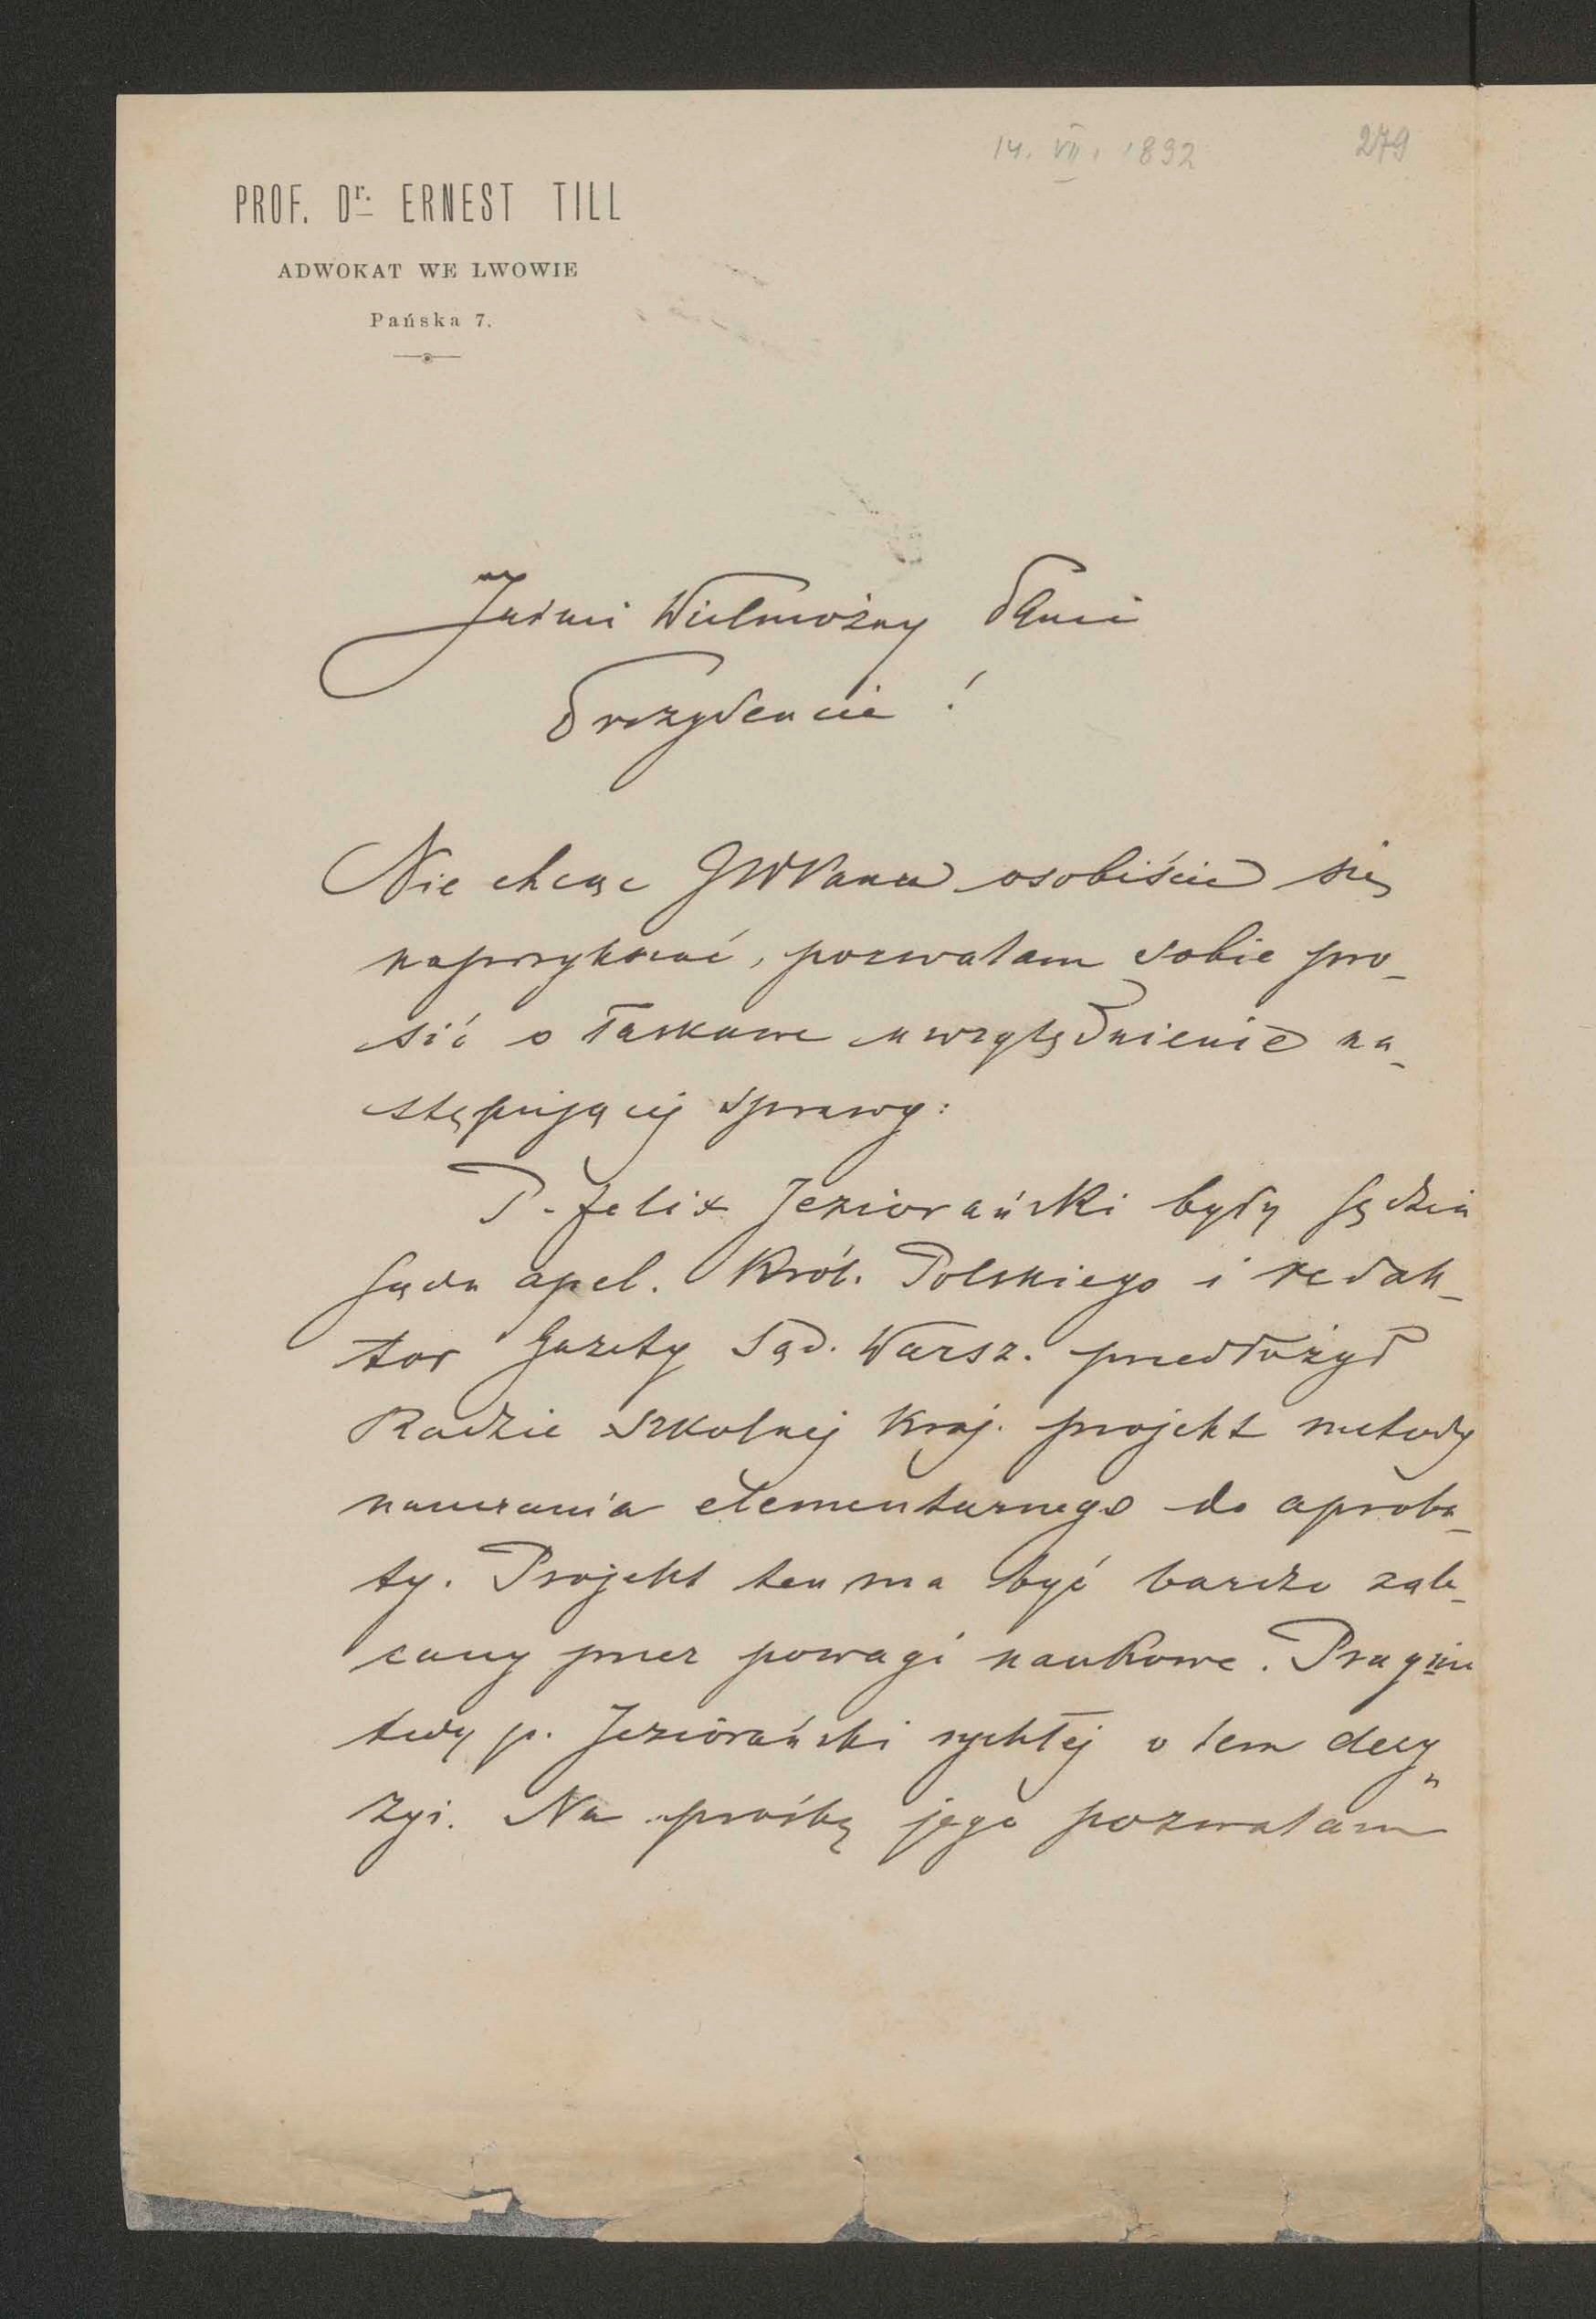 14. VII. 1892
279
PROF. Dr. ERNEST TILL
ADWOKAT WE LWOWIE
Pańska 7.
Jaśnie Wielmożny Panie
Prezydencie!
Nie chcąc JWPana osobiście się
naprzykrzać, pozwalam sobie pro-
sić o łaskawe uwzględnienie na-
stępującej sprawy:
P. Felix Jeziorański były sędzia
sądu apel. Król. Polskiego i redak-
tor Gazety Sąd. Warsz. przedłożył
Radzie szkolnej kraj. projekt metody
nauczania elementarnego do aproba-
ty. Projekt ten ma być bardzo zale-
cany przez powagi naukowe. Pragnie
tedy p. Jeziorański rychłej o tem decy-
zyi. Na prośbę jego pozwalam